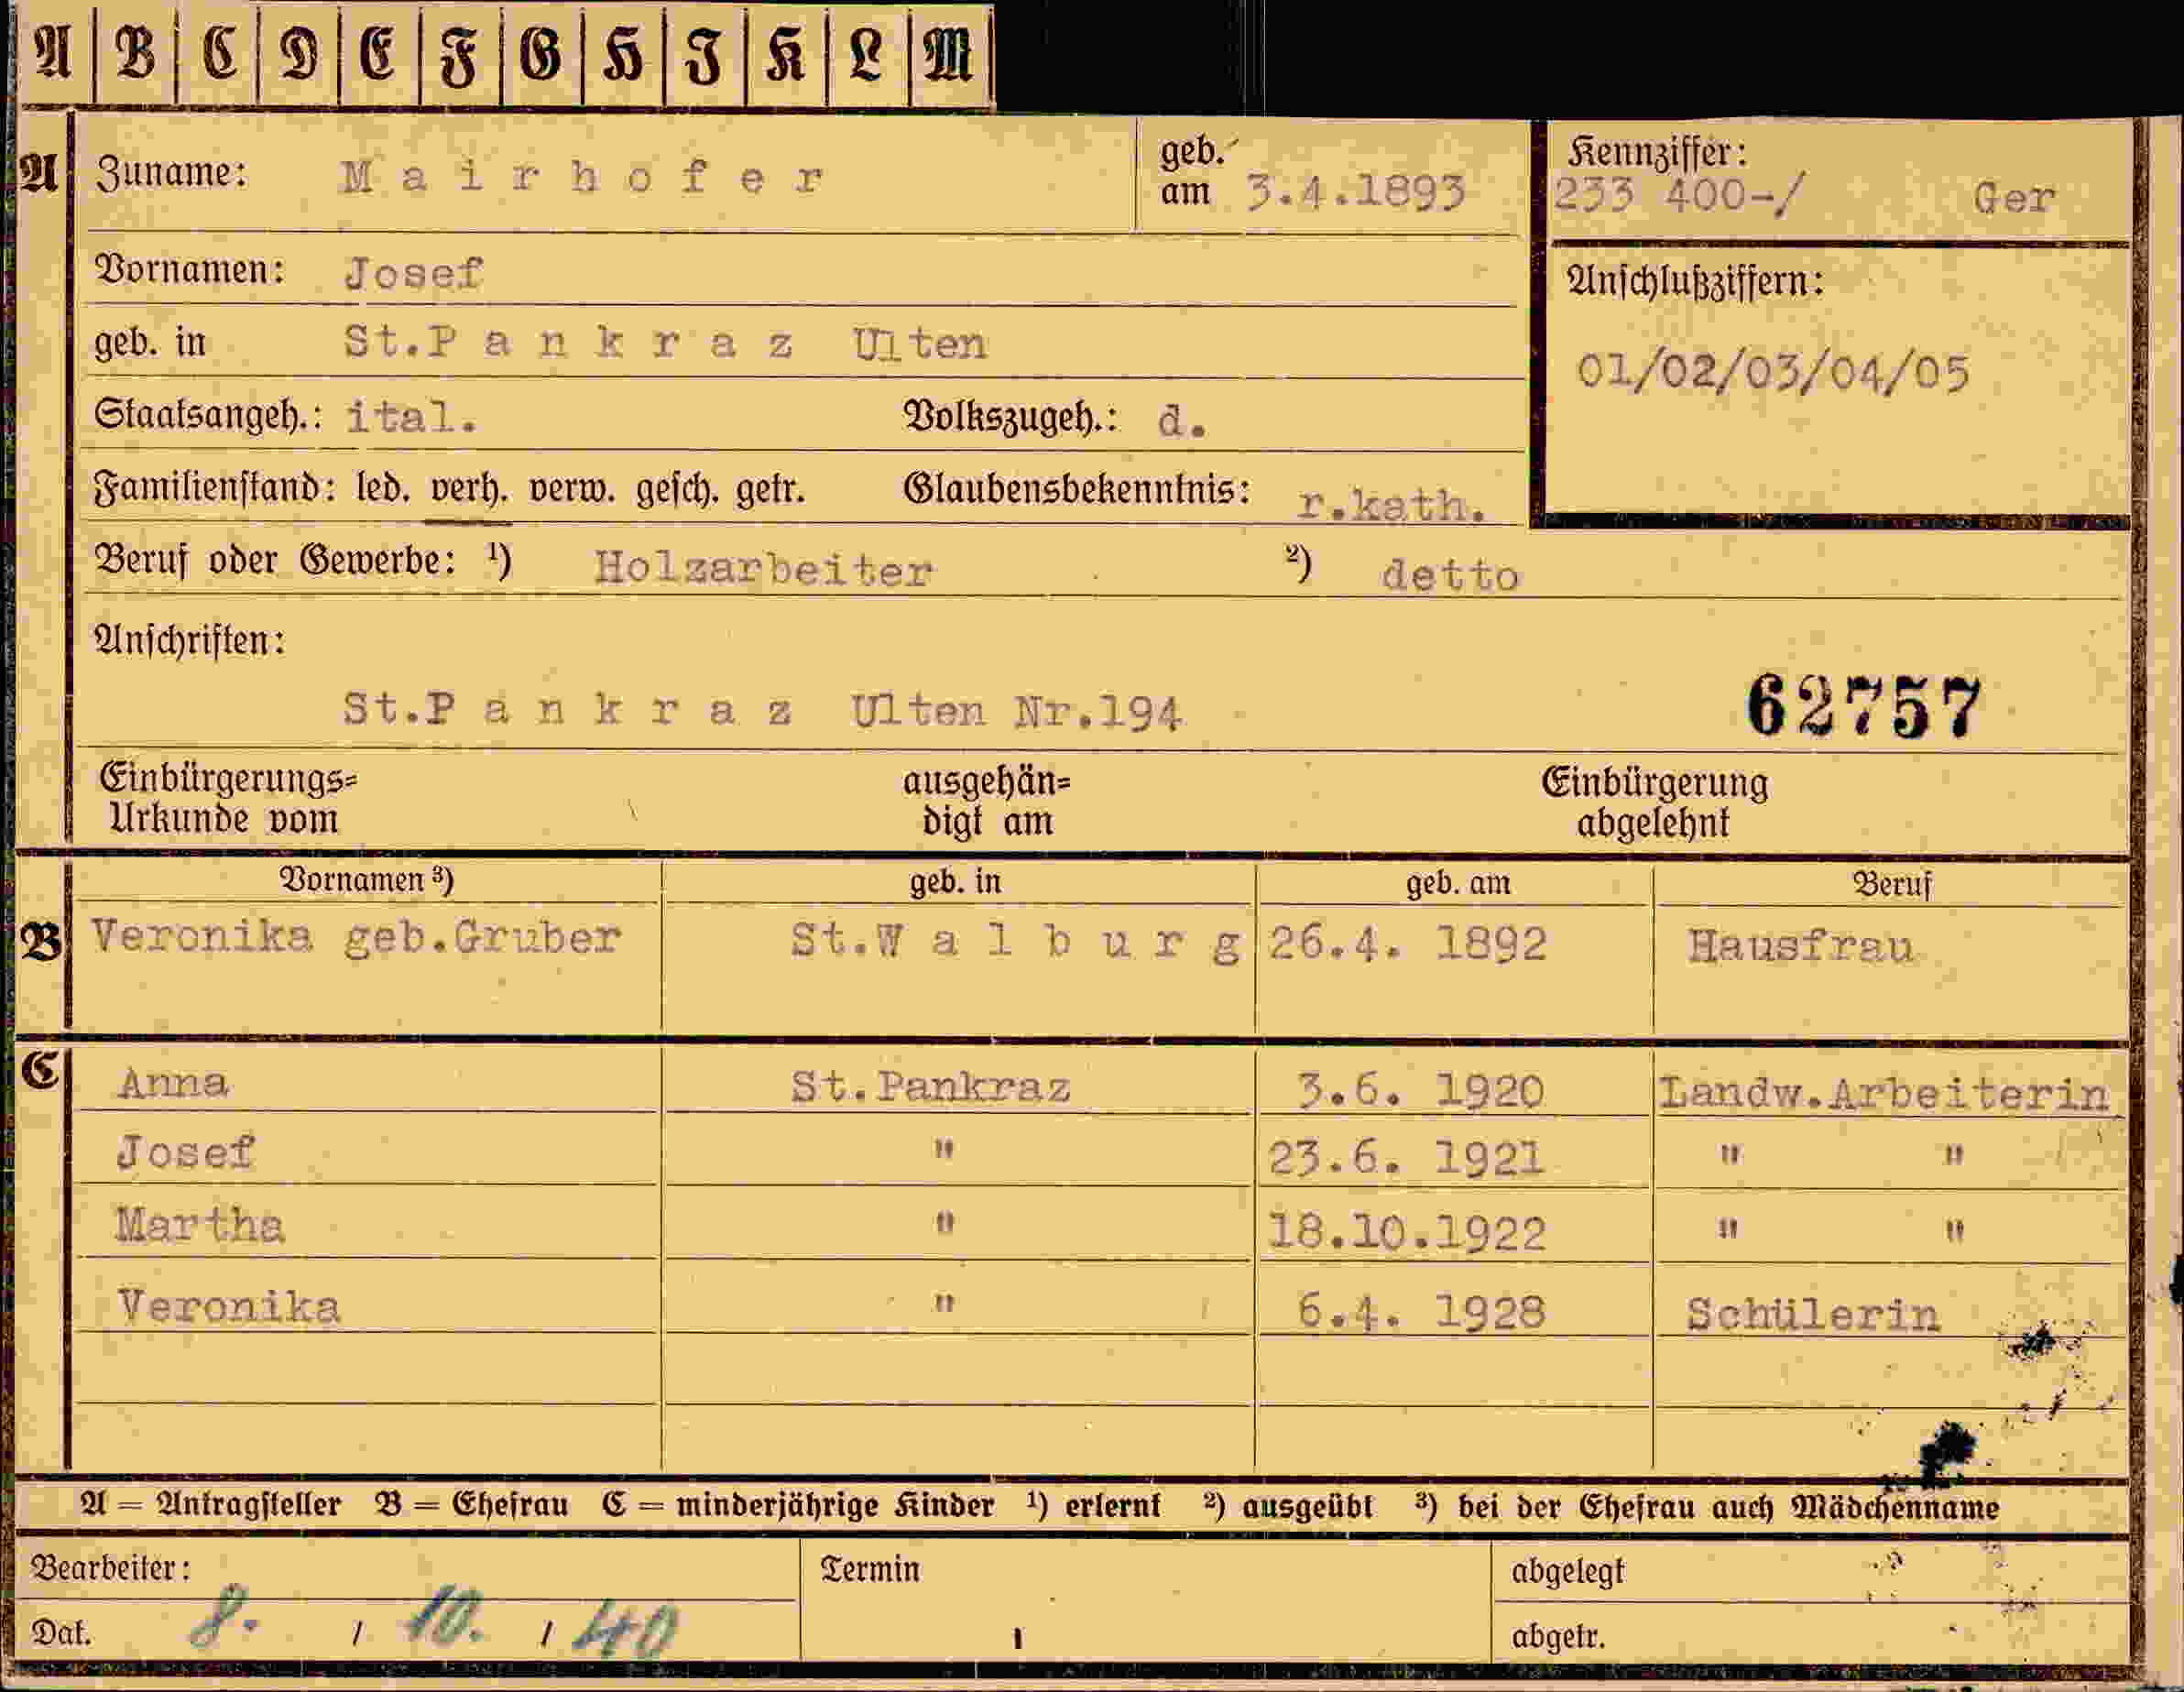 A B C D E F G H I K L M
A Zuname: Mairhofer geb. am 3.4.1893 Kennziffer: 233 400-/ Ger
Vornamen: Josef Anschlußziffern:
geb. in St.Pankraz Ulten 01/02/03/04/05
Staatsangeh.: ital. Volkszugeh.: d.
Familienstand: led. verh. verw. gesch. getr. Glaubensbekenntnis: r.kath.
Beruf oder Gewerbe: ¹) Holzarbeiter ²) detto
Anschriften:
St.Pankraz Ulten Nr.194 62757
Einbürgerungs= ausgehän= Einbürgerung
Urkunde vom digt am abgelehnt
Vornamen ³) geb. in geb. am Beruf
B Veronika geb.Gruber St.Walburg 26.4. 1892 Hausfrau
C Anna St.Pankraz 3.6. 1920 Landw.Arbeiterin
Josef " 23.6. 1921 " "
Martha " 18.10.1922 " "
Veronika " 6.4. 1928 Schülerin
A = Antragsteller B = Ehefrau C = minderjährige Kinder ¹) erlernt ²) ausgeübt ³) bei der Ehefrau auch Mädchenname
Bearbeiter: Termin abgelegt
Dat. 8. / 10. / 40 abgetr.